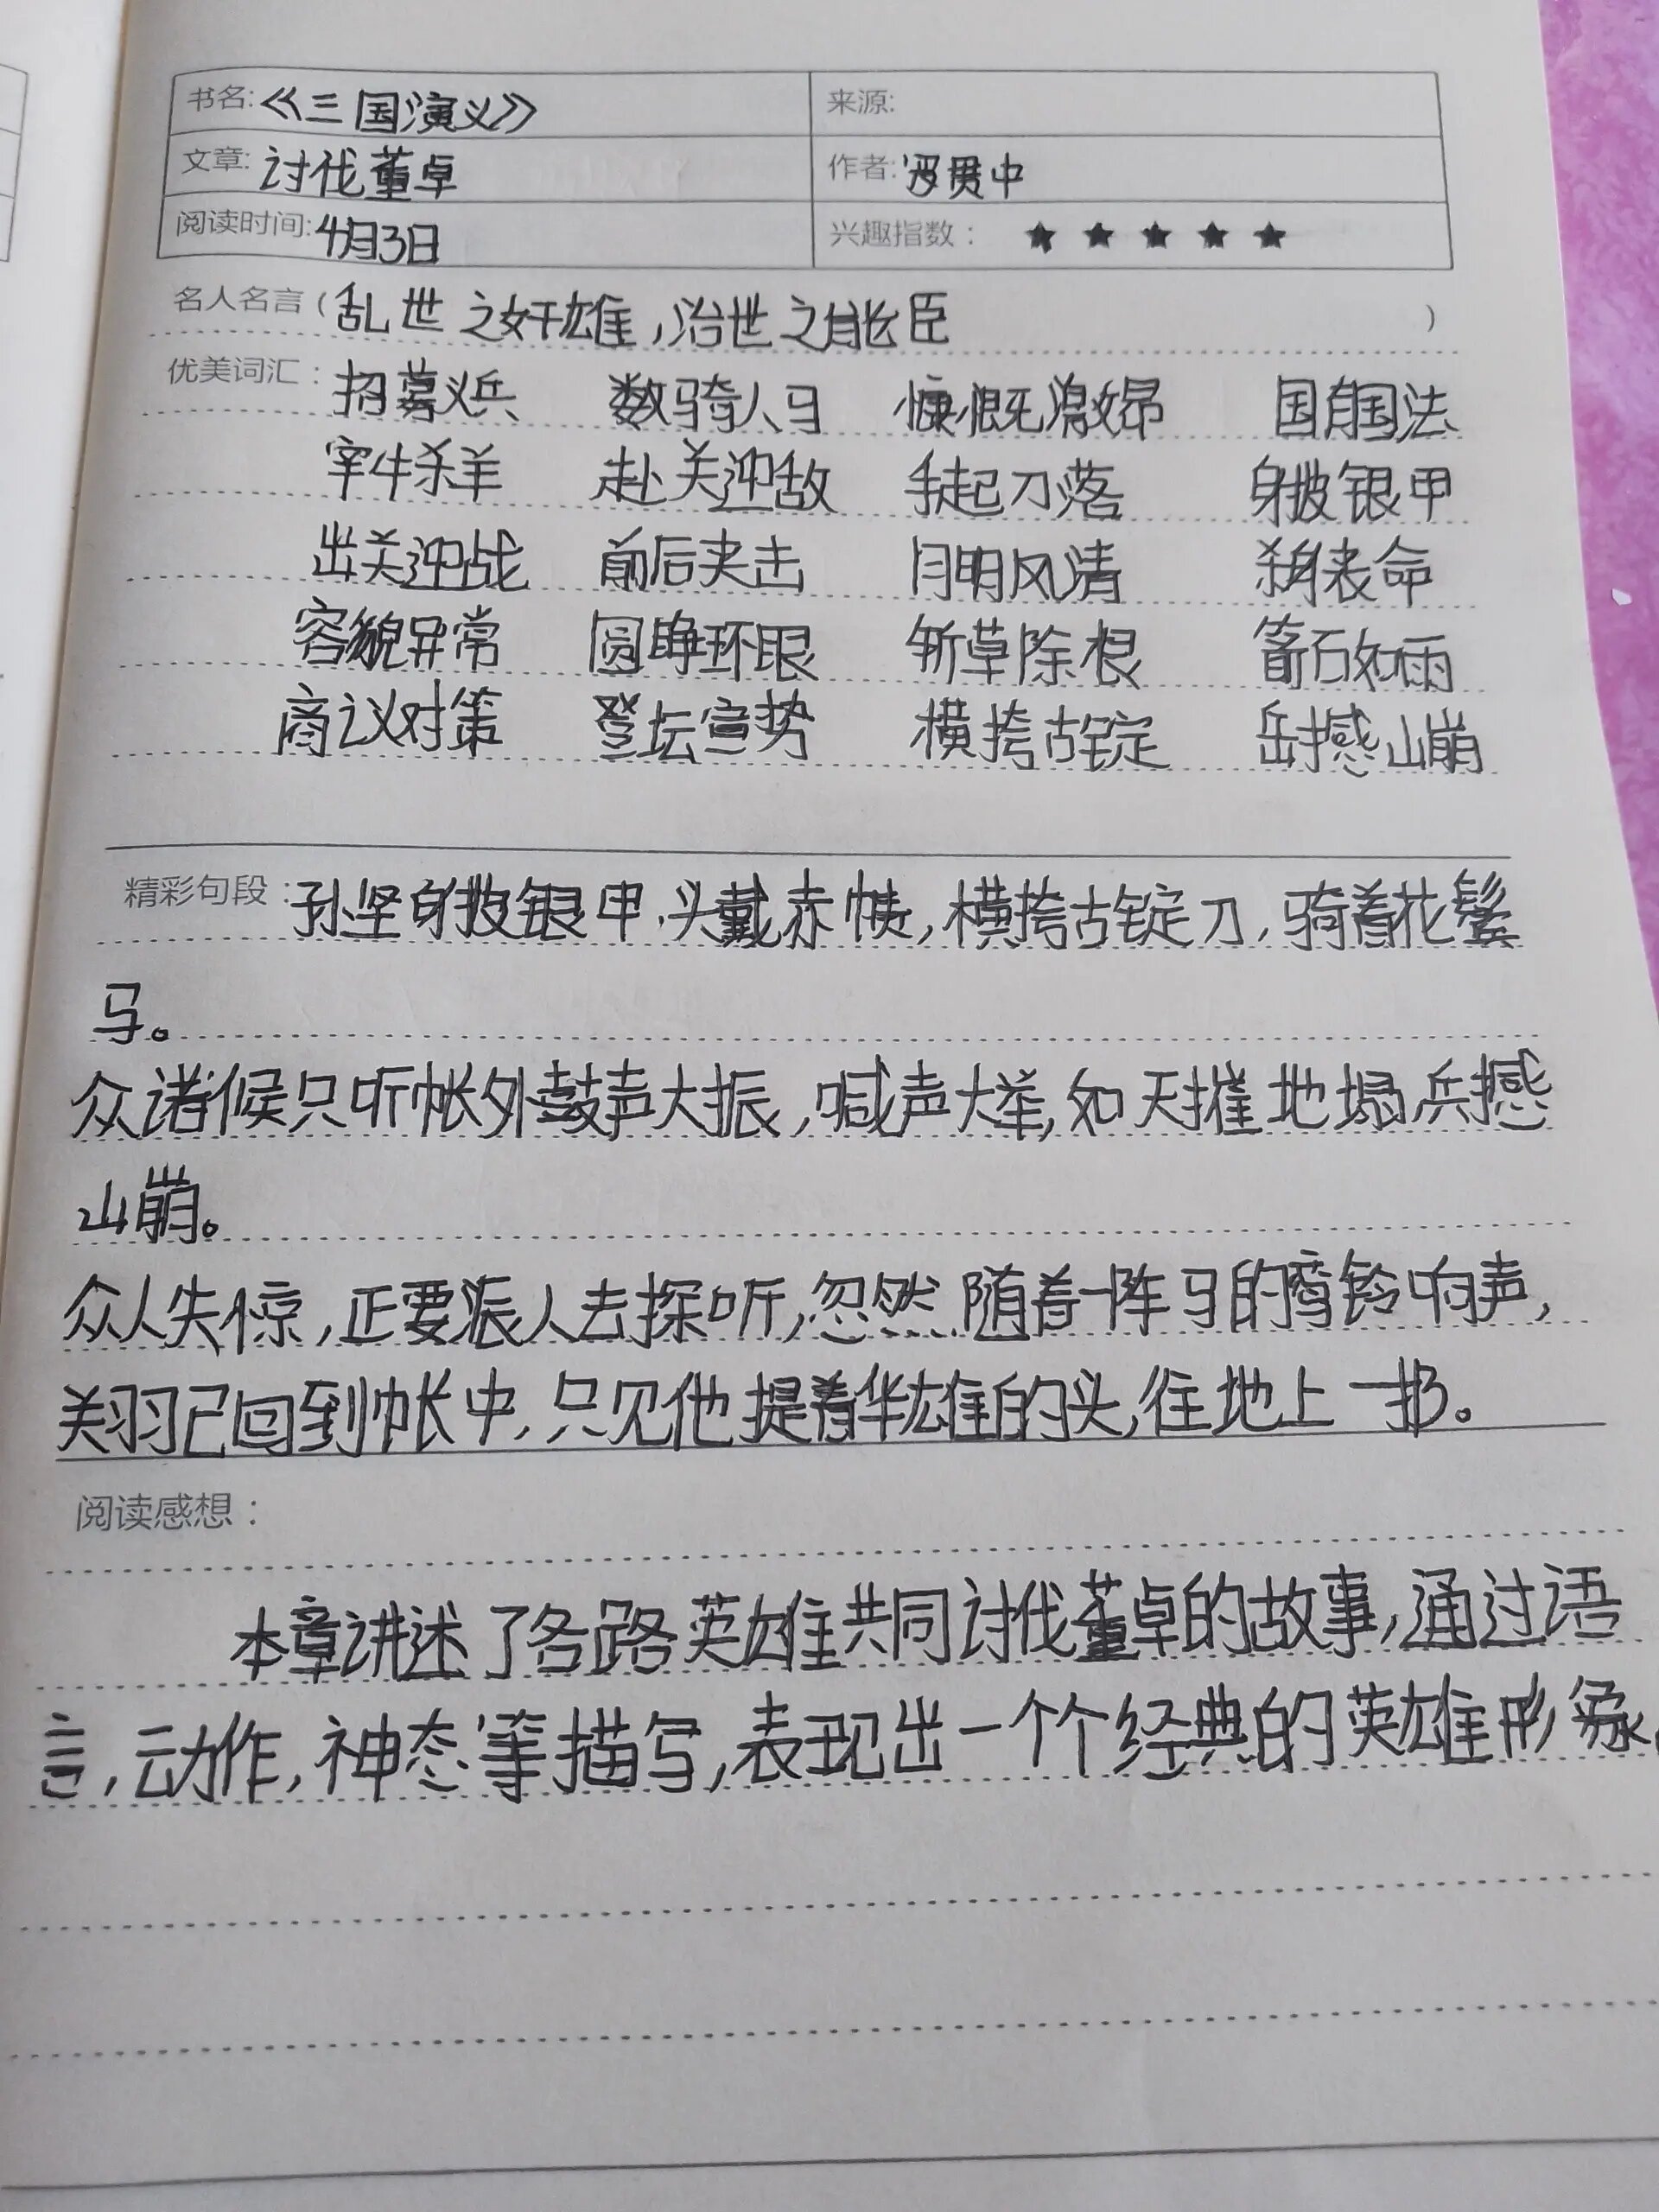 书名:《三国演义》 来源:
文章: 讨伐董卓 作者: 罗贯中
阅读时间: 4月3日 兴趣指数： ★ ★ ★ ★ ★
名人名言（乱世之奸雄,治世之能臣）
优美词汇：招募义兵 数骑人马 慷慨激昂 国有国法
宰牛杀羊 赴关迎敌 手起刀落 身披银甲
出关迎战 前后夹击 月明风清 丧命
容貌异常 圆睁环眼 斩草除根 箭石如雨
商议对策 登坛宣势 横挎古锭 岳撼山崩
精彩句段：孙坚身披银甲,头戴赤帻,横挎古锭刀,骑着花鬃
马。
众诸候只听帐外鼓声大振,喊声大举,如天摧地塌,兵撼
山崩。
众人失惊,正要派人去探听,忽然随着一阵马的鸾铃响声,
关羽已回到帐中,只见他提着华雄的头,往地上一扔。
阅读感想：
本章讲述了各路英雄共同讨伐董卓的故事,通过语
言,动作,神态等描写,表现出一个个经典的英雄形象。